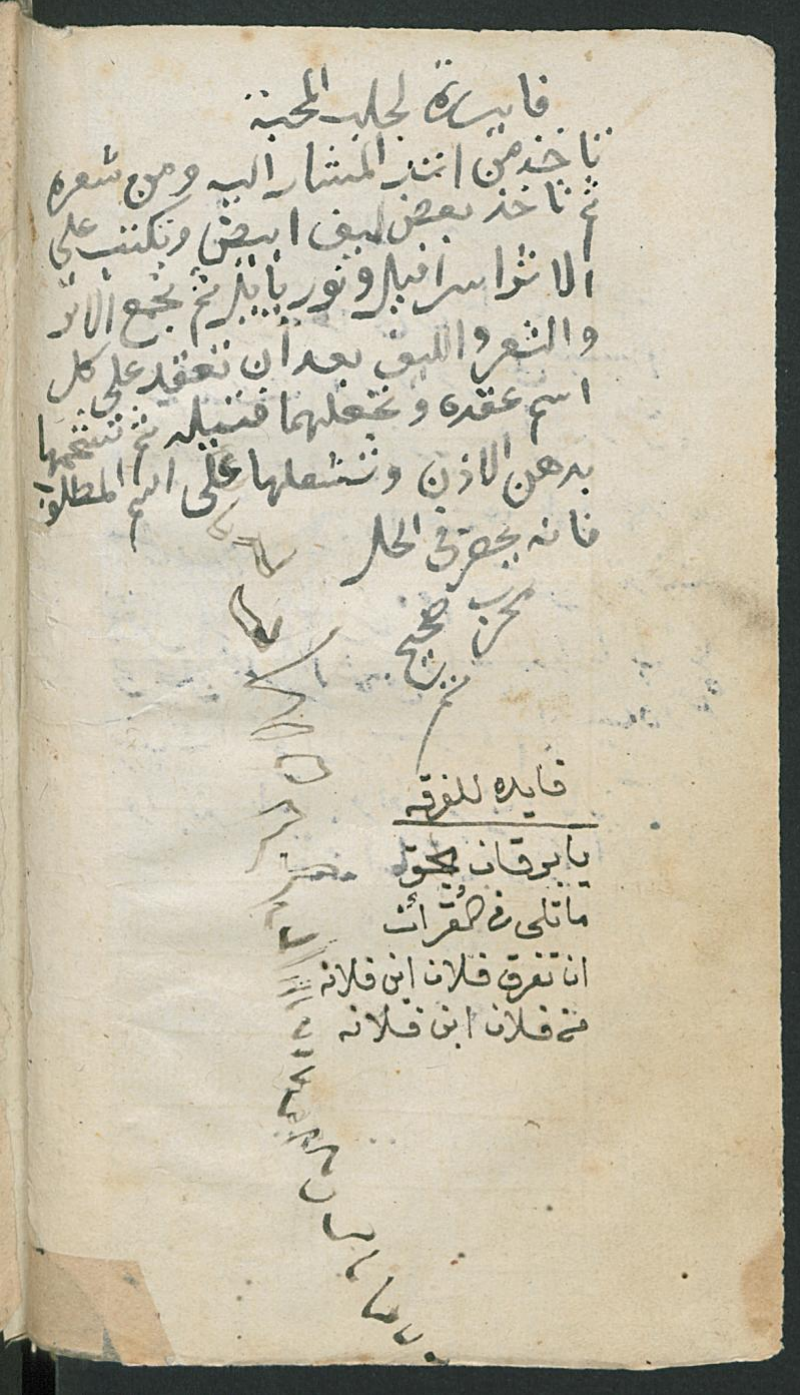 فايدة لجلب المحبة
تاخذ من اثر المشار اليه ومن شعره
ثم تاخذ بعض ليف ابيض وتكتب على
الاثر اسرافيل ونوريائيل ثم تجمع الاثر
والشعر والليف بعد أن تعقد على كل
اسم عقده وتجعلهما فتيله ثم تشحمها
بدهن الاذن وتشعلها على اسم المطلوب
فانه يحضر في الحال
مجرب صحيح
تم
فايده للفرقه
يا برقان بحق
ما تلى فى القرآن
ان تفرق فلان ابن فلانه
من فلان ابن فلانه